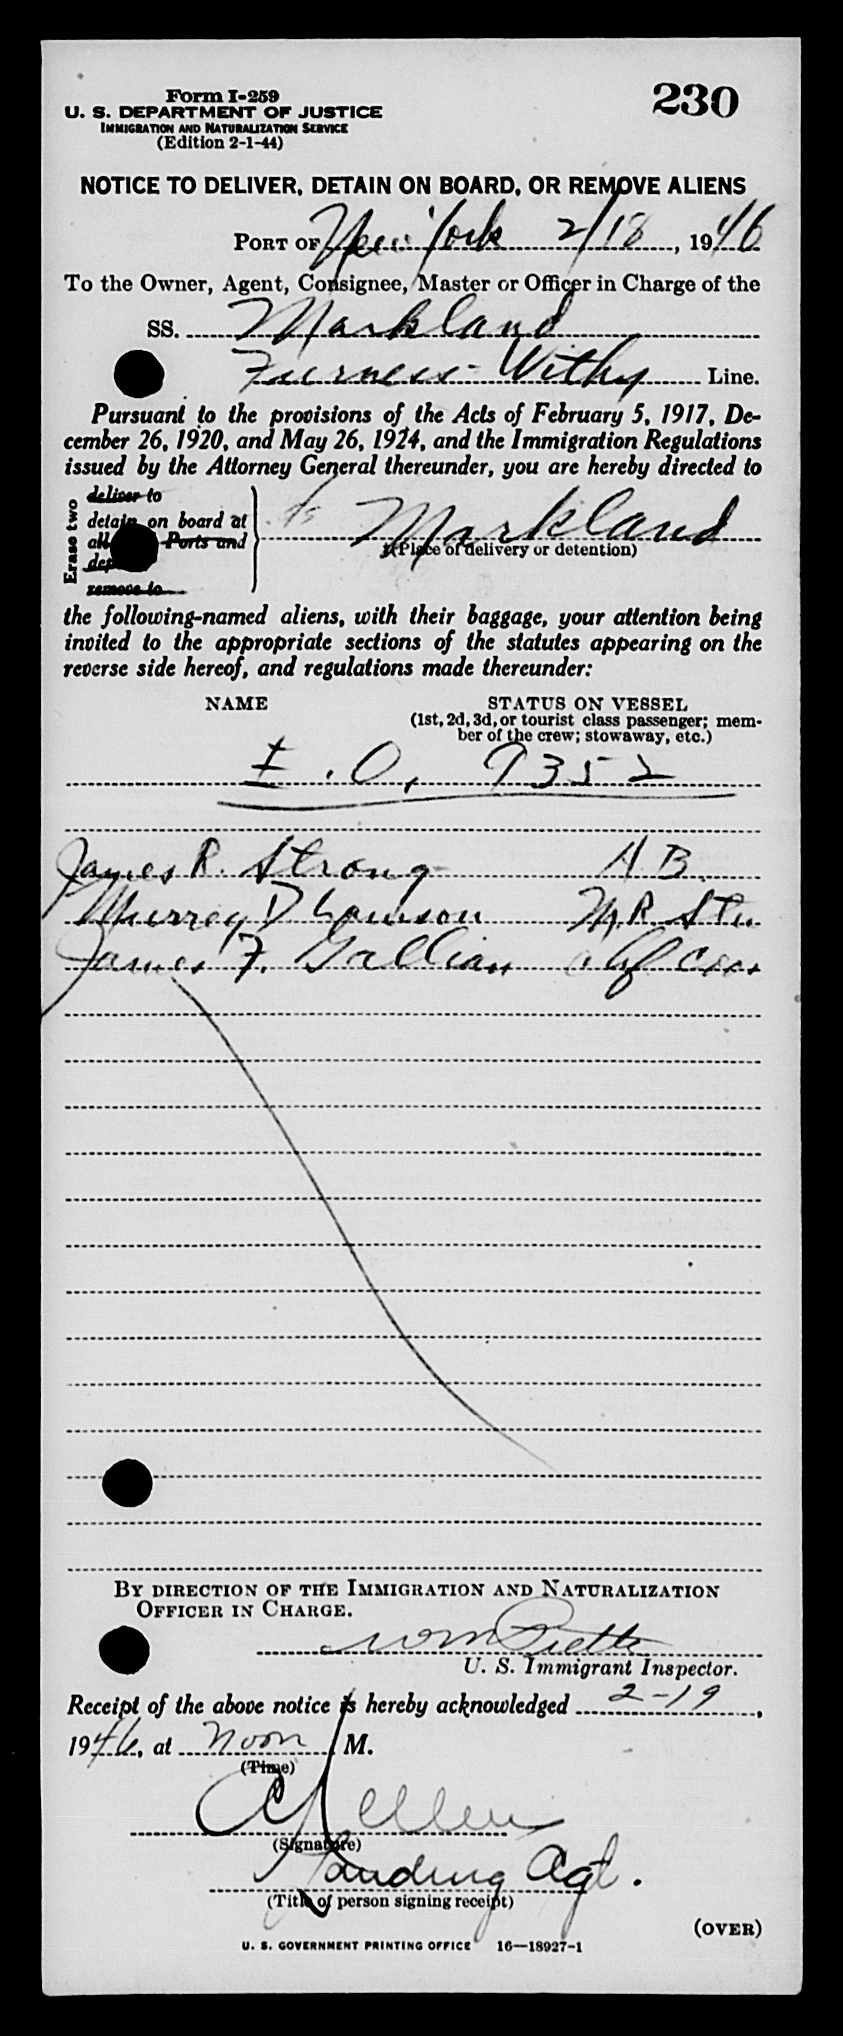 Form I-259
230
U. S. DEPARTMENT OF JUSTICE
IMMIGRATION AND NATURALIZATION SERVICE
(Edition 2-1-44)
NOTICE TO DELIVER, DETAIN ON BOARD, OR REMOVE ALIENS
PORT OF New York 2/18, 1946
To the Owner, Agent, Consignee, Master or Officer in Charge of the
SS. Markland
Furness-Withy Line.
Pursuant to the provisions of the Acts of February 5, 1917, De-
cember 26, 1920, and May 26, 1924, and the Immigration Regulations
issued by the Attorney General thereunder, you are hereby directed to
Erase two
deliver to
detain on board at
all Ports and
remove to
Markland
(Place of delivery or detention)
the following-named aliens, with their baggage, your attention being
invited to the appropriate sections of the statutes appearing on the
reverse side hereof, and regulations made thereunder:
NAME STATUS ON VESSEL
(1st, 2d, 3d, or tourist class passenger; mem-
ber of the crew; stowaway, etc.)
E.O. 9352
James R. Strong A B.
Murrey D M.R. Stu
James F. Gallian
BY DIRECTION OF THE IMMIGRATION AND NATURALIZATION
OFFICER IN CHARGE.
Wm
U. S. Immigrant Inspector.
Receipt of the above notice is hereby acknowledged 2-19,
1946, at noon M.
(Time)
(Signature)
Landing Agt.
(Title of person signing receipt)
(OVER)
U. S. GOVERNMENT PRINTING OFFICE 16—18927-1